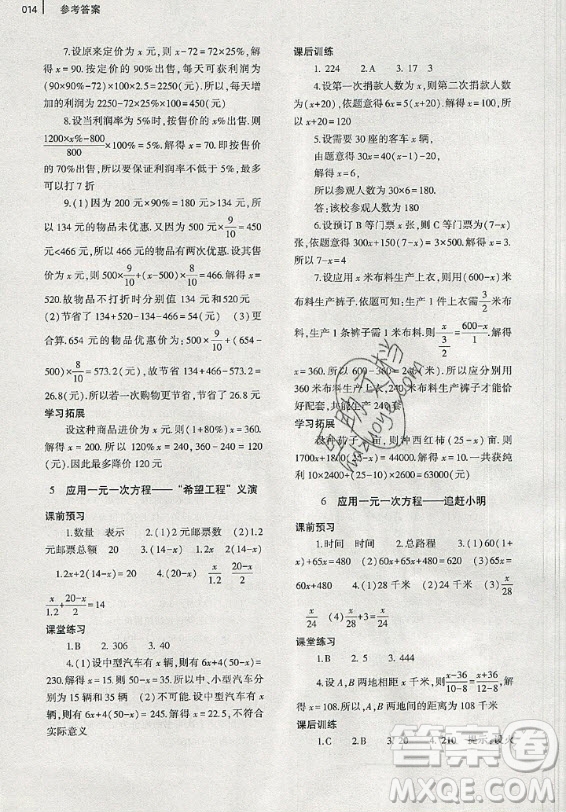 014 参考答案
7.设原来定价为 x 元,则 x-72=72×25%,解得
x=90.按定价的 90%出售,每天可获利润为
(90×90%-72)×100×2.5=2250(元).所以每天增
加的利润为 2250-72×25%×100=450(元)
8.设当利润率为 5%时,按售价的 x%出售.则
\frac{1200×x%-800}{800}×100%=5%,解得 x=70.所以按售
价的 70%出售,可以保证利润率不低于 5%.最多
可以打 7 折
9.(1)因为 200×90%=180(元),180>134,所
以 134 元的物品未优惠.又因为 500×\frac{9}{10}=450
元<466 元,所以 466 元的物品有两次优惠.设其售
价为 x 元,则 500×\frac{9}{10}+(x-500)×\frac{8}{10}=466.解得 x=
520.故物品不打折时分别值 134 元和 520 元
(2)节省了 134+520-134-466=54(元) (3)两次
购买 134+520=654 元的物品优惠价为:500×\frac{9}{10}+
(654-500)×\frac{8}{10}=573.2(元),134+466-573.2=
26.8(元).所以若一次购物更节省,节省了 26.8 元
学习拓展
设这种商品进价为 x 元,则(1+80%)x=360.
解得 x=200.200×(1+20%)=240,360-240=120
(元).因此最多降价 120 元
5 应用一元一次方程——“希望工程”义演
课前预习
1.数量 表示 2.(1)2 元邮票数 (2)1.2
元邮票总额 20 3.(1)(14-x) (2)1.2x 2(14-x)
4.1.2x+2(14-x)=20 5.(1)20-x \frac{x}{1.2} \frac{20-x}{2}
\frac{x}{1.2}+\frac{20-x}{2}=14
课堂练习
1.B 2.306 3.40
4.(1)设中型汽车有 x 辆,则有 6x+4(50-x)=
230.解得 x=15.则 50-x=35.所以中、小型汽车分
别为 15 辆和 35 辆 (2)不可能.设中型汽车有 x
辆,则有 6x+4(50-x)=245.解得 x=22.5.不符合
实际意义
课后训练
1.224 2.A 3.17 3
4.设第一次捐款人数为 x 人,则第二次捐款人数
为(x+20),依题意得 6x=5(x+20).解得 x=100,所
以 x+20=120
5.设需要 30 座的客车 x 辆,
由题意得 30x=40(x-1)-20,
解得 x=6,
所以参观人数为 30x=180.
答:该校参观人数为 180
6.设预订 B 等门票 x 张,则 C 等门票为(7-x)
张,依题意得 300x+150(7-x)=1500.解得 x=3.
所以 7-x=4
7.设应用 x 米布料生产上衣,则用(600-x)米
布料生产裤子.依题意知:生产 1 件上衣需\frac{3}{2}米布
料,生产 1 条裤子需 1 米布料.\frac{x}{\frac{3}{2}}=\frac{600-x}{1}.解得
x=360.所以 600-360=240(米).所以应分别用
360 米布料生产上衣,240 米布料生产裤子才能恰
好配套,共能生产 240 套
学习拓展
设这种茄子 x 亩,则种西红柿(25-x)亩,则
1700x+1800(25-x)=44000.解得 x=10.一共获纯利
10×2400+(25-10)×2600=63000(元)
6 应用一元一次方程——追赶小明
课前预习
1.时间 时间 2.总路程 3.(1)60x 65x
(2)60x+480 (3)65x=60x+480 (4)65x-
60x=480 4.(1)28 千米 (2)24 千米 (3)\frac{x}{28}
\frac{x}{24} (4)\frac{x}{28}+3=\frac{x}{24}
课堂练习
1.B 2.5 3.444
4.设 A、B 两地相距 x 千米,则\frac{x-36}{10-8}=\frac{x+36}{12-8},解
得 x=108.所以,A、B 两地间的距离为 108 千米
课后训练
1.C 2.B 3.20 4.210 提示:设火
作业帮文档
MXQE.COM